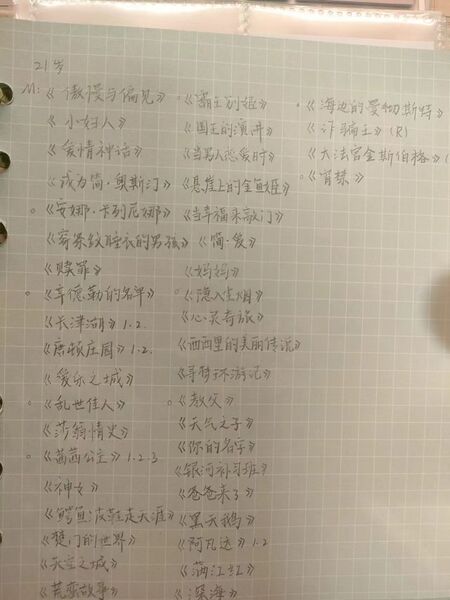 21岁
M:《傲慢与偏见》
《小妇人》
《爱情神话》
《成为简·奥斯汀》
《安娜·卡列尼娜》
《穿条纹睡衣的男孩》
《赎罪》
《辛德勒的名单》
《长津湖》1.2.
《唐顿庄园》1.2.
《爱乐之城》
《乱世佳人》
《莎翁情史》
《茜茜公主》1.2.3
《神女》
《鳄鱼波鞋走天涯》
《楚门的世界》
《天空之城》
《荒蛮故事》
《霸王别姬》
《国王的演讲》
《当男人恋爱时》
《悬崖上的金鱼姬》
《当幸福来敲门》
《简·爱》
《妈妈》
《隐入尘烟》
《心灵奇旅》
《西西里的美丽传说》
《寻梦环游记》
《教父》
《天气之子》
《你的名字》
《银河补习班》
《爸爸来了》
《黑天鹅》
《阿凡达》1.2
《满江红》
《深海》
《海边的曼彻斯特》
《诈骗王》(R)
《大法官金斯伯格》(
《宵禁》